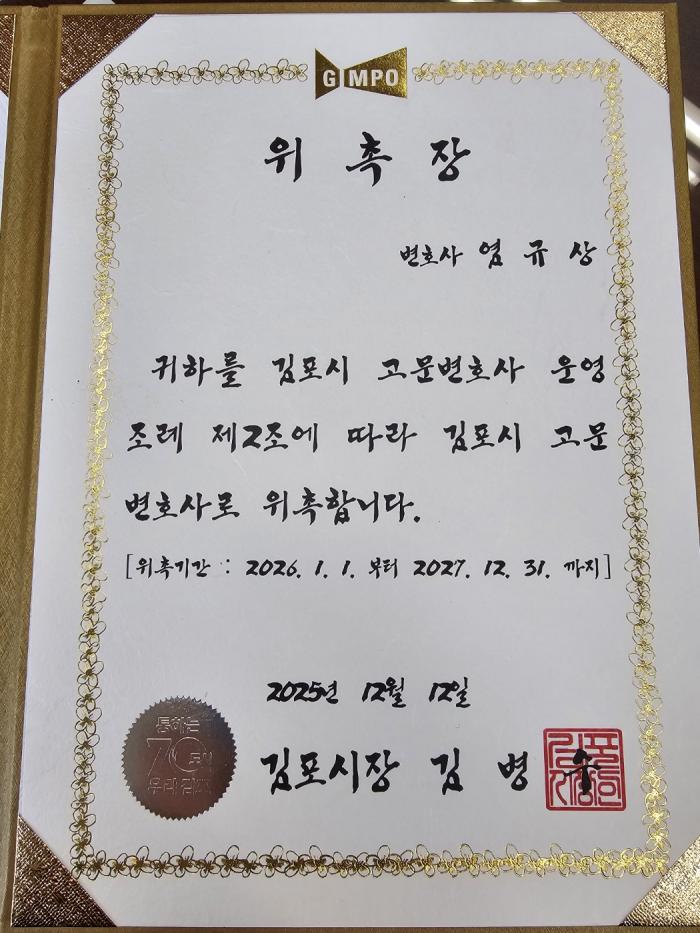 GIMPO
위 촉 장
변호사 염 규 상
귀하를 김포시 고문변호사 운영
조례 제2조에 따라 김포시 고문
변호사로 위촉합니다.
[위촉기간 : 2026. 1. 1. 부터 2027. 12. 31. 까지]
2025년 12월 12일
김포시장 김 병 수
통하는
70
우리 김포